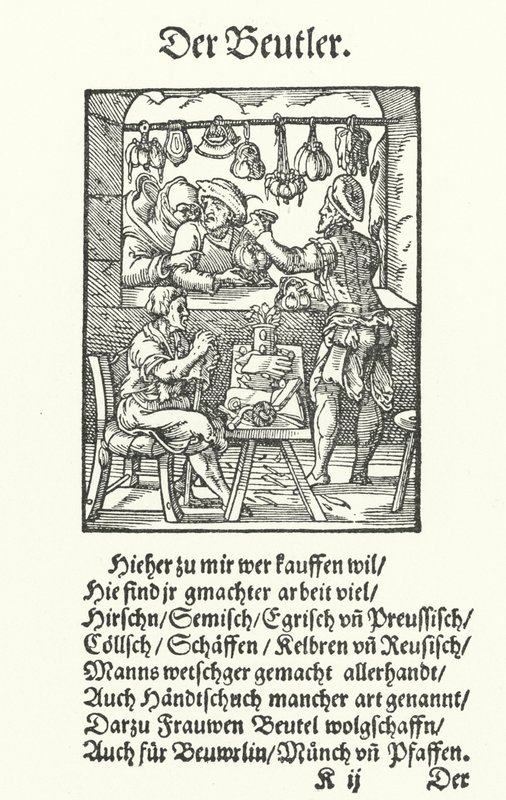 Der Beutler.
Hieher zu mir wer kauffen wil/
Hie find jr gmachter arbeit viel/
Hirschn/Semisch/Egrisch vñ Preussisch/
Cöllsch/Schäffen/Kelbren vñ Reusisch/
Manns wetschger gemacht allerhandt/
Auch Händtschuch mancher art genannt/
Darzu Frauwen Beutel wolgschaffn/
Auch für Beuwrlin/Münch vñ Pfaffen.
K ij Der